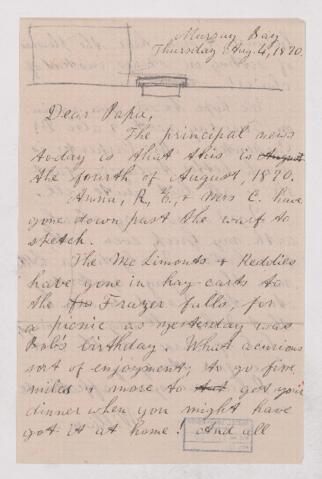 Murray Bay
Thursday Aug. 4, 1870.
Dear Papa,
The principal news
today is that this is August
the fourth of August, 1870.
Annie, R, E, & Mrs C. have
gone down past the warf to
sketch.
The McLimonts & Reddies
have gone in hay-carts to
the Frazer falls, for
a picnic as yesterday was
birthday. What a curious
sort of enjoyment; to go five
miles & more to get your
dinner when you might have
got it at home! And all